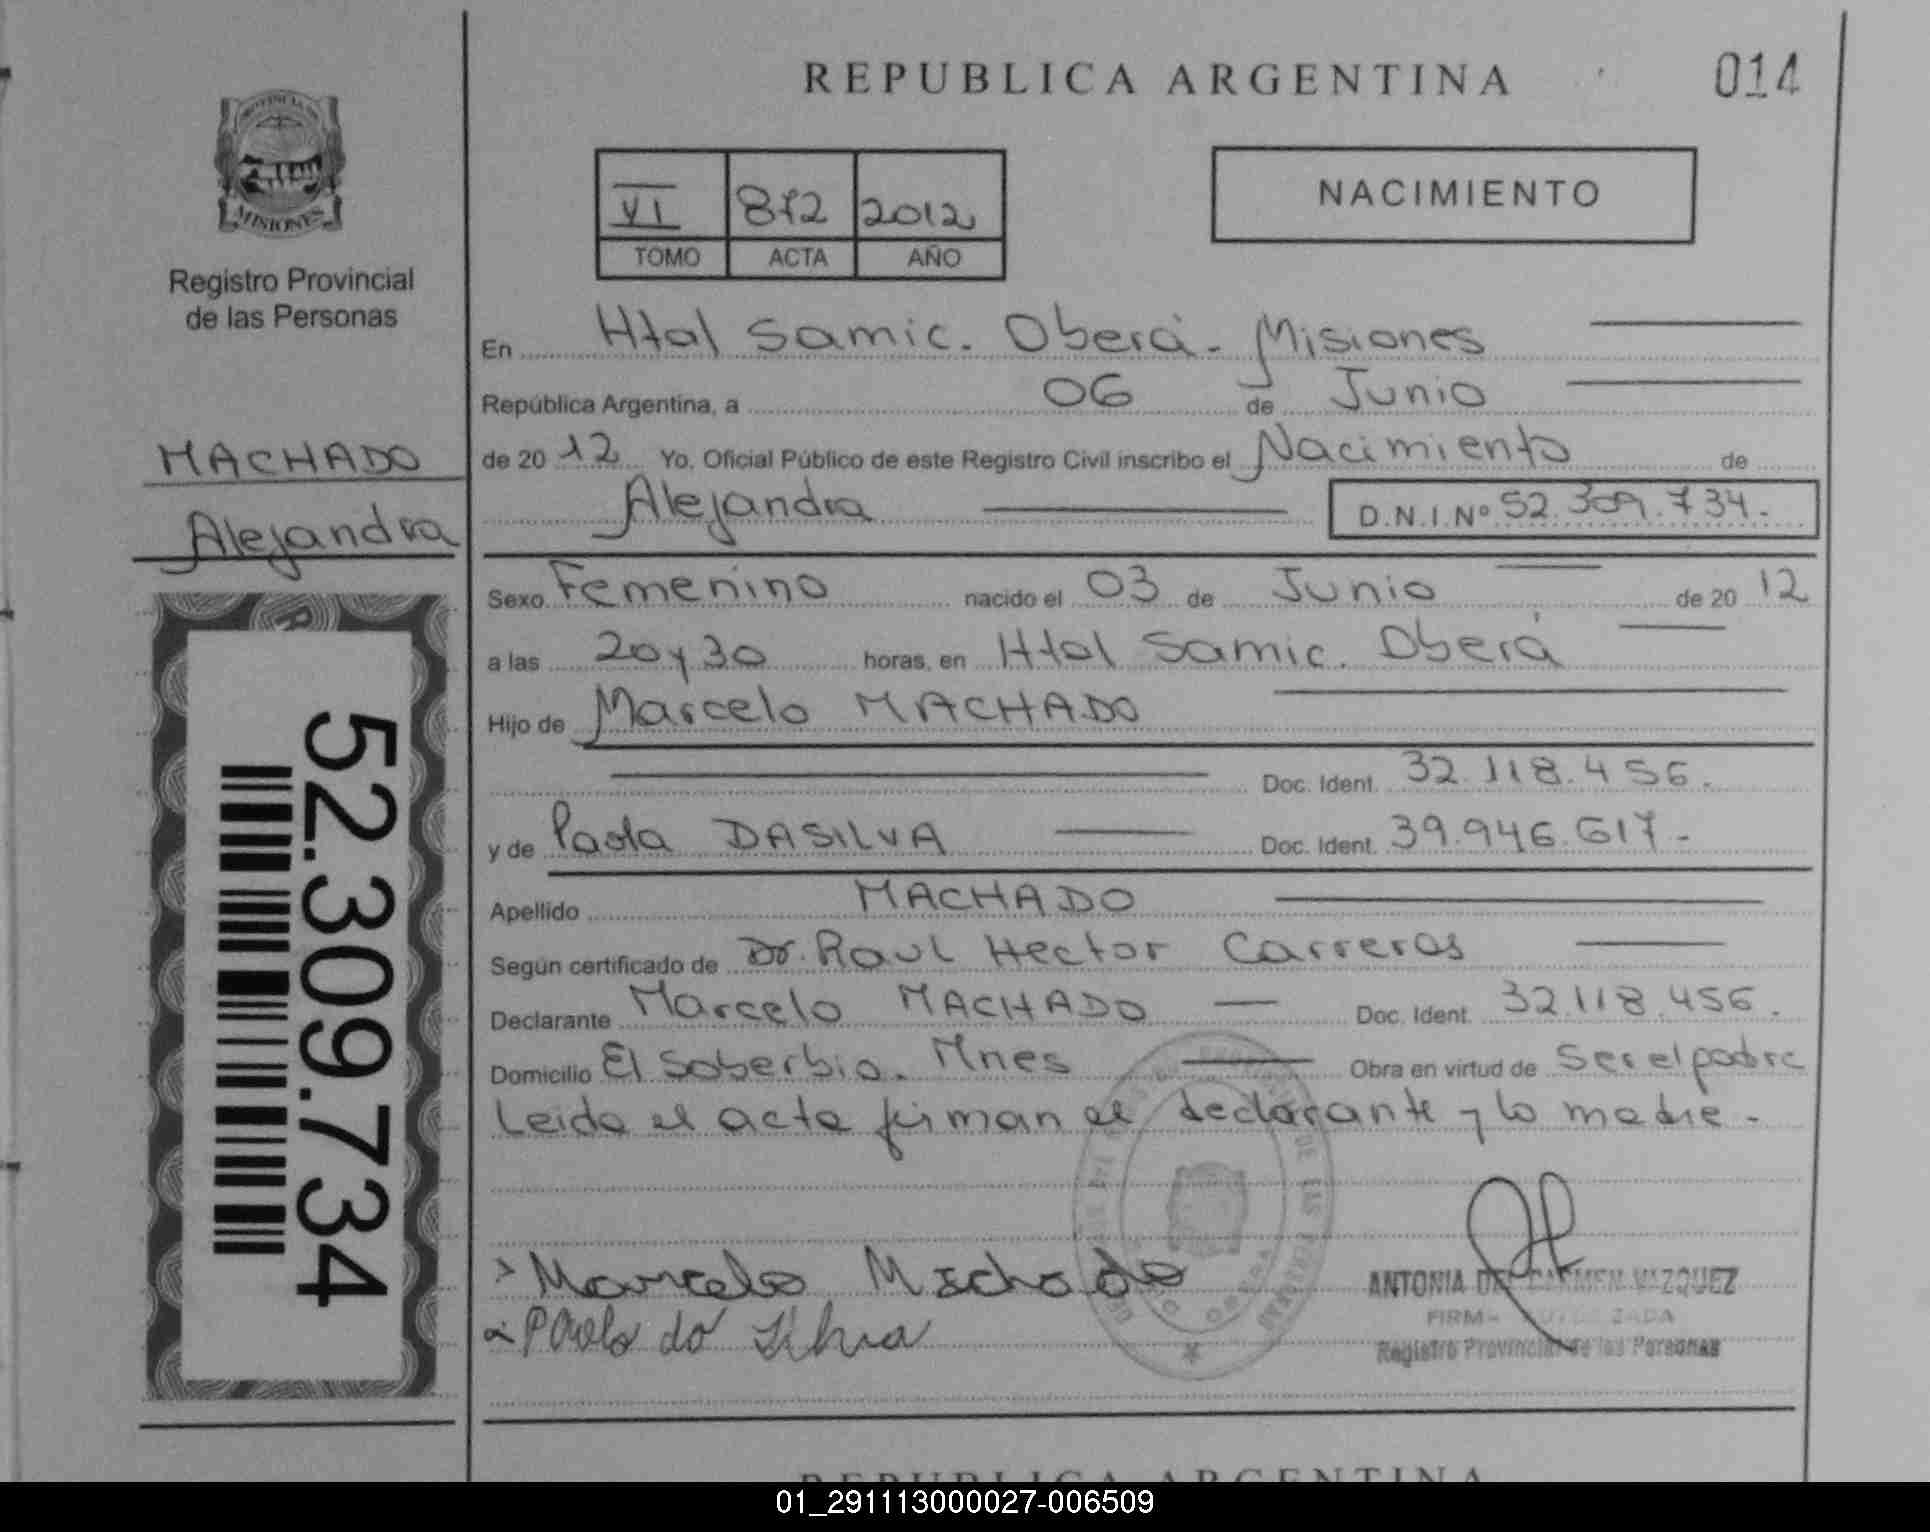 REPUBLICA ARGENTINA
014
PROVINCIA DE
MISIONES
Registro Provincial
de las Personas
VI 872 2012
TOMO ACTA AÑO
NACIMIENTO
En Htal Samic. Oberá - Misiones
República Argentina, a 06 de Junio
MACHADO
de 20 12 Yo. Oficial Público de este Registro Civil inscribo el Nacimiento de
Alejandra
Alejandra D.N.I.Nº 52.309.734.-
Sexo Femenino nacido el 03 de Junio de 20 12
a las 20 y 30 horas, en Htal Samic. Oberá
Hijo de Marcelo MACHADO
Doc. Ident. 32.118.456.
y de Paola DASILVA Doc. Ident. 39.946.617.-
Apellido MACHADO
Según certificado de Dr. Raul Hector Carreras
Declarante Marcelo MACHADO Doc. Ident. 32.118.456.
Domicilio El Soberbio. Mnes Obra en virtud de Ser el padre
Leida el acta firman el declarante y la madre.-
52.309.734
Marcelo Machado
Paola da Silva
ANTONIA DEL CARMEN VAZQUEZ
FIRMA AUTORIZADA
Registro Provincial de las Personas
DE LAS PERSONAS
OBERA
REPUBLICA ARGENTINA
01_291113000027-006509